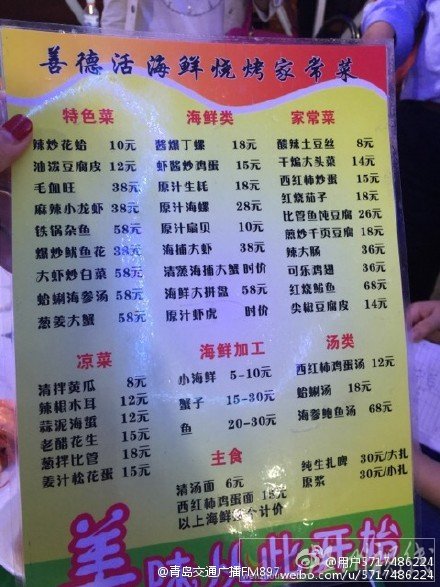 善德活海鲜烧烤家常菜
特色菜
辣炒花蛤 10元
油泼豆腐皮 12元
毛血旺 38元
麻辣小龙虾 38元
铁锅杂鱼 58元
爆炒鱿鱼花 38元
大虾炒白菜 58元
蛤蜊海参汤 58元
葱姜大蟹 58元
海鲜类
酱爆丁螺 18元
虾酱炒鸡蛋 15元
原汁生蚝 18元
原汁海螺 28元
原汁扇贝 10元
海捕大虾 38元
清蒸海捕大蟹 时价
海鲜大拼盘 58元
原汁虾虎 时价
家常菜
酸辣土豆丝 8元
干煸大头菜 14元
西红柿炒蛋 15元
红烧茄子 18元
比管鱼炖豆腐 26元
煎炒千页豆腐 18元
辣大肠 36元
可乐鸡翅 36元
红烧鲅鱼 68元
尖椒豆腐皮 14元
凉菜
清拌黄瓜 8元
辣根木耳 12元
蒜泥海蜇 12元
老醋花生 15元
葱拌比管 18元
姜汁松花蛋 15元
海鲜加工
小海鲜 5-10元
蟹子 15-30元
鱼 20-30元
汤类
西红柿鸡蛋汤 12元
蛤蜊汤 18元
海参鲍鱼汤 68元
主食
清汤面 6元
西红柿鸡蛋面 15元
以上海鲜按个计价
纯生扎啤 30元/大扎
原浆 30元/小扎
美味从此开始
@青岛交通广播FM897
@用户3717486224
weibo.com/u/3717486224